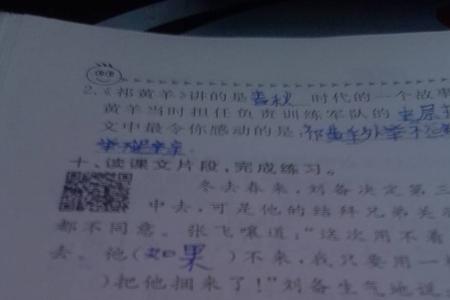 2.《祁黄羊》讲的是春秋时代的一个故事
黄羊当时担任负责训练军队的
文中最令你感动的是:祁黄羊外举不
十、读课文片段,完成练习。
冬去春来,刘备决定第三
中去,可是他的结拜兄弟关
都不同意。张飞嚷道:“这次用不着
去。他(如果)不来,我只要用一
)把他捆来了!”刘备生气地说